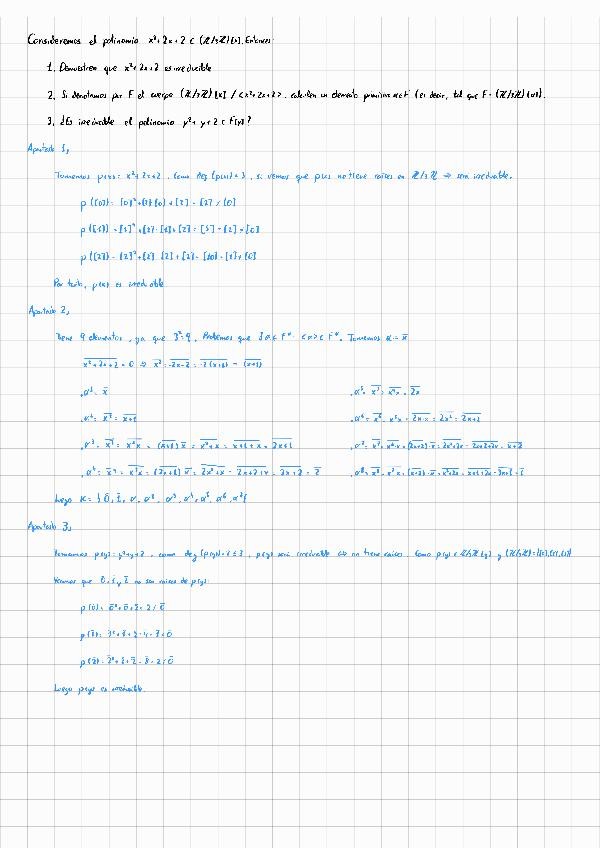 Consideremos el polinomio x²+2x+2 ∈ (ℤ/3ℤ)[x]. Entonces:
1. Demuestren que x²+2x+2 es irreducible
2. Si denotamos por F el cuerpo (ℤ/3ℤ)[x] / <x²+2x+2>, calculen un elemento primitivo α∈F (es decir, tal que F=(ℤ/3ℤ)(α)).
3. ¿Es irreducible el polinomio y²+y+2 ∈ F[y]?
Apartado 1,
Tomemos p(x)= x²+2x+2. Como deg(p(x)) ≤ 3, si vemos que p(x) no tiene raíces en ℤ/3ℤ ⇒ será irreducible.
p([0])= [0]²+[2][0]+[2] = [2] ≠ [0]
p([1]) = [1]²+[2]·[1]+[2] = [5] = [2] ≠ [0]
p([2]) = [2]²+[2]·[2]+[2] = [10] = [1] ≠ [0]
Por tanto, p(x) es irreducible
Apartado 2,
Tiene 9 elementos, ya que 3²=9. Probemos que ∃ α ∈ F* : <α> = F*. Tomemos α = x̄
x²+2x+2 = 0 ⇒ x² = -2x-2 = -2(x+1) = (x+1)
α¹ = x̄ α⁵ = x⁵ = x⁴x = 2x
α² = x² = x+1 α⁶ = x⁶ = x⁵x = 2x·x = 2x² = 2x+2
α³ = x³ = x²x = (x+1)x = x²+x = x+1+x = 2x+1 α⁷ = x⁷ = x⁶·x = (2x+2)·x = 2x²+2x = 2x+2+2x = x+2
α⁴ = x⁴ = x³x = (2x+1)x = 2x²+x = 2x+2+x = 3x+2 = 2 α⁸ = x⁸ = x⁷x = (x+2)·x = x²+2x = x+1+2x = 3x+1 = 1
Luego K = {0, 1, α, α², α³, α⁴, α⁵, α⁶, α⁷}
Apartado 3,
Tomamos p(y)= y²+y+2, como deg(p(y))=2 ≤ 3, p(y) será irreducible ⇔ no tiene raíces. Como p(y) ∈ ℤ/3ℤ[y] y (ℤ/3ℤ)={[0],[1],[2]}
Veamos que 0, 1 y 2 no son raíces de p(y):
p(0) = 0²+0+2 = 2 ≠ 0
p(1) = 1²+1+2 = 4 = 1 ≠ 0
p(2) = 2²+2+2 = 8 = 2 ≠ 0
Luego p(y) es irreducible.